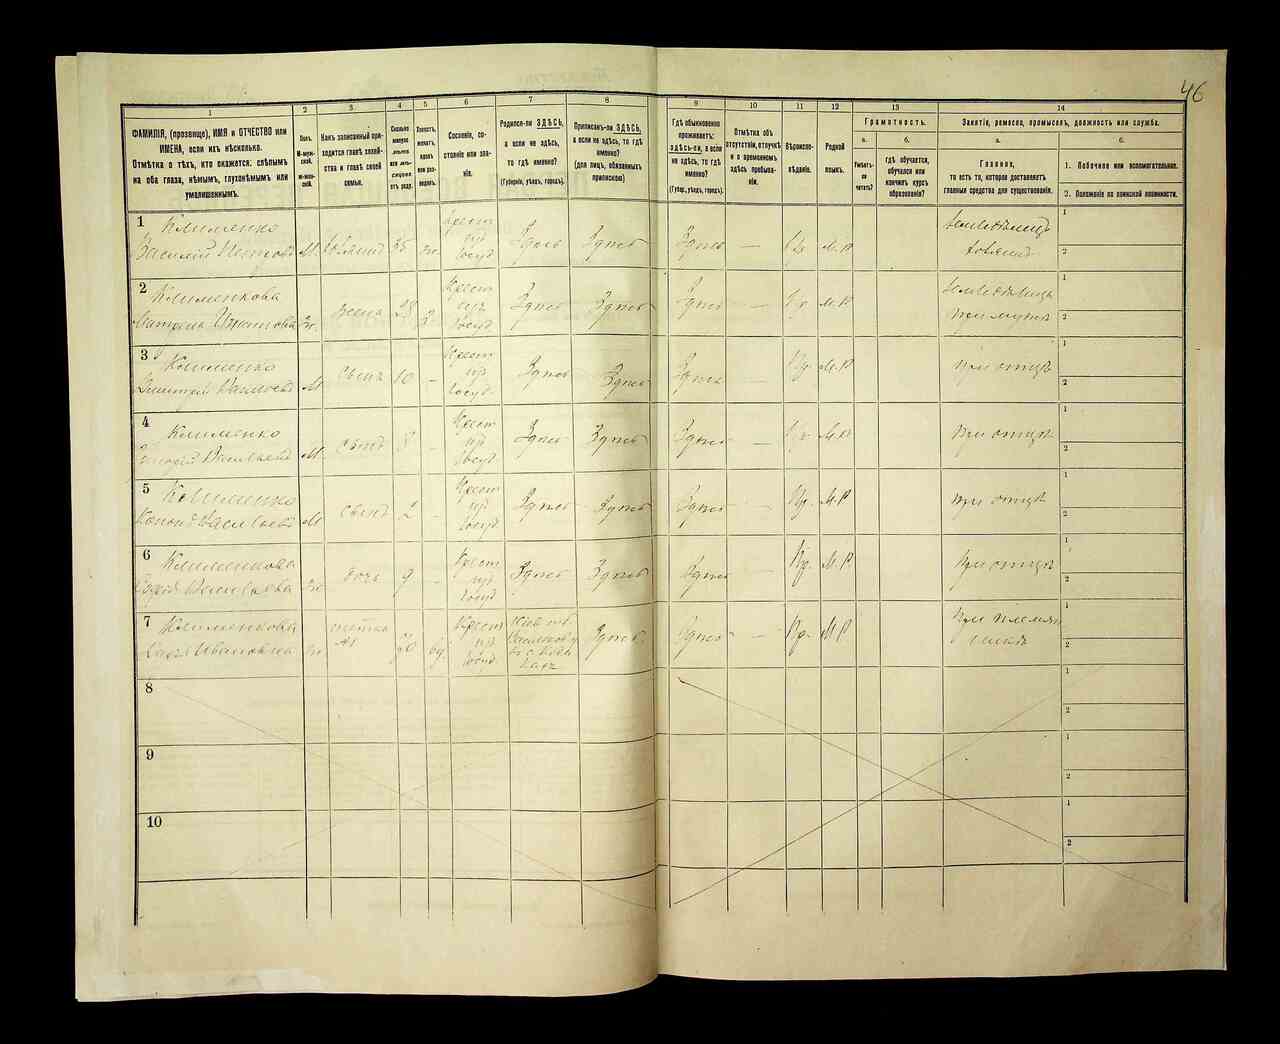 46
1
2
3
4
5
6
7
8
9
10
11
12
13
14
ФАМИЛІЯ, (прозвище), ИМЯ и ОТЧЕСТВО или
ИМЕНА, если ихъ нѣсколько.
Отмѣтка о тѣхъ, кто окажется: слѣпымъ
на оба глаза, нѣмымъ, глухонѣмымъ или
умалишеннымъ.
Полъ.
М-муж-
ской.
Ж-жен-
скій.
Какъ записанный при-
ходится главѣ хозяй-
ства и главѣ своей
семьи.
Сколько
минуло
лѣтъ
отъ роду.
Холостъ,
женатъ,
вдовъ
или раз-
веденъ.
Сословіе, со-
стояніе или зва-
ніе.
Родился-ли ЗДѢСЬ,
а если не здѣсь,
то гдѣ именно?
(Губернія, уѣздъ, городъ).
Приписанъ-ли ЗДѢСЬ,
а если не здѣсь, то гдѣ
именно?
(для лицъ, обязанныхъ
припискою)
Гдѣ обыкновенно
проживаетъ:
здѣсь-ли, а если
не здѣсь, то гдѣ
именно?
(Губер., уѣздъ, городъ).
Отмѣтка объ
отсутствіи, отлучкѣ
и о временномъ
здѣсь пребыва-
ніи.
Вѣроиспо-
вѣданіе.
Родной
языкъ.
Грамотность.
а.
б.
Умѣетъ-
ли
читать?
гдѣ обучается,
обучался или
кончилъ курсъ
образованія?
Занятіе, ремесло, промыселъ, должность или служба.
а.
б.
Главное,
то есть то, которое доставляетъ
главныя средства для существованія.
1. Побочное или вспомогательное.
2. Положеніе по воинской повинности.
1
Клименко
Василій Петровъ
М
хозяинъ
35
ж.
Крест
изъ
Госуд
Здѣсь
Здѣсь
Здѣсь
—
Пр
М.Р
земледѣлецъ
хозяинъ
1
2
2
Клименкова
Матрена
ж.
жена
28
З
Крест
изъ
Госуд
Здѣсь
Здѣсь
Здѣсь
—
Пр.
М.Р
земледѣлица
при мужѣ
1
2
3
Клименко
Дмитрій Васильевъ
М
сынъ
10
-
Крест
изъ
Госуд.
Здѣсь
Здѣсь
Здѣсь
Пр.
М.Р
при отцѣ
1
2
4
Клименко
Васильевъ
М.
сынъ
-
Крест
изъ
Госуд
Здѣсь
Здѣсь
Здѣсь
—
Пр
М.Р
при отцѣ
1
2
5
Клименко
Васильевъ
М
сынъ
2
-
Крест
изъ
Госуд
Здѣсь
Здѣсь
Здѣсь
—
Пр.
М.Р
при отцѣ
1
2
6
Клименкова
Васильева
ж.
дочь
9
-
Крест
изъ
Госуд
Здѣсь
Здѣсь
Здѣсь
—
Пр.
М.Р
при отцѣ
1
2
7
Клименкова
Ивановна
ж.
тетка
70
Крест
изъ
Госуд
Здѣсь
Здѣсь
—
Пр.
М.Р
при племян
никѣ
1
2
8
1
2
9
1
2
10
1
2